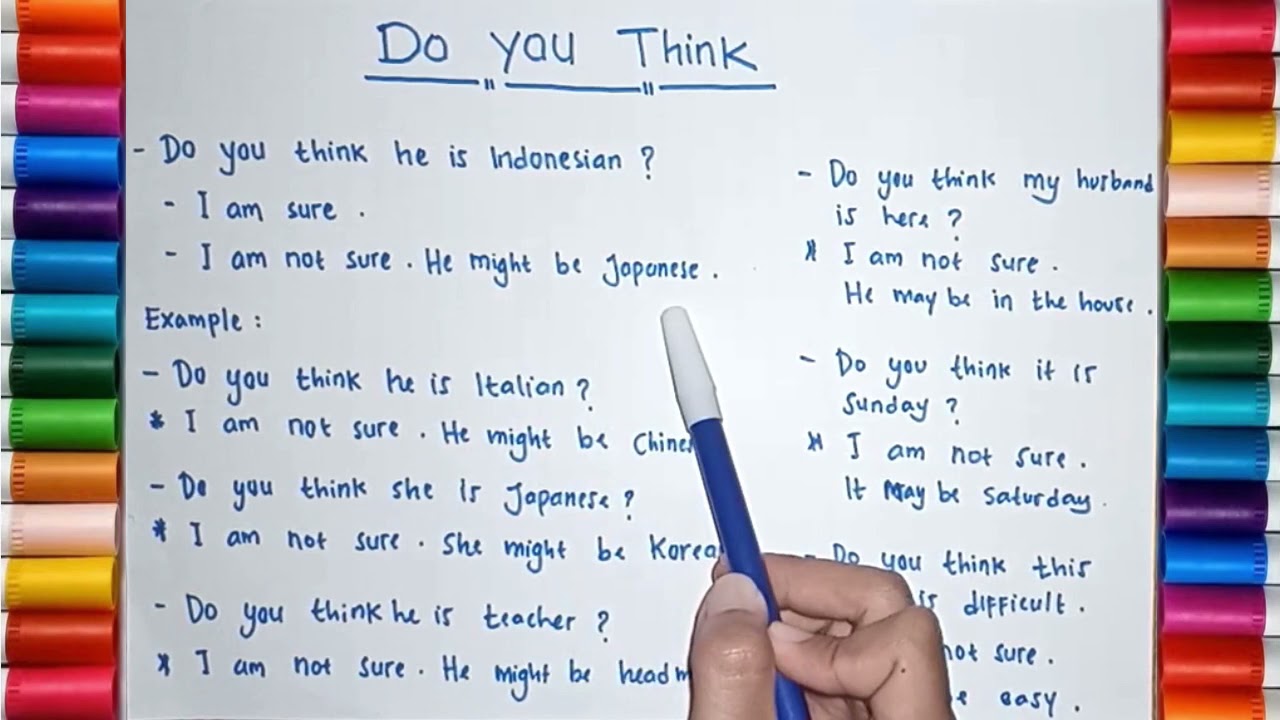 Do you Think
- Do you think he is Indonesian ?
- I am sure .
- I am not sure . He might be Japanese .
Example :
- Do you think he is Italian ?
* I am not sure . He might be Chines
- Do you think she is Japanese ?
* I am not sure . She might be Korea
- Do you think he is teacher ?
* I am not sure . He might be head m
- Do you think my husband
is here ?
* I am not sure .
He may be in the house .
- Do you think it is
Sunday ?
* I am not sure .
It May be Saturday .
- Do you think this
is difficult .
not sure .
easy .